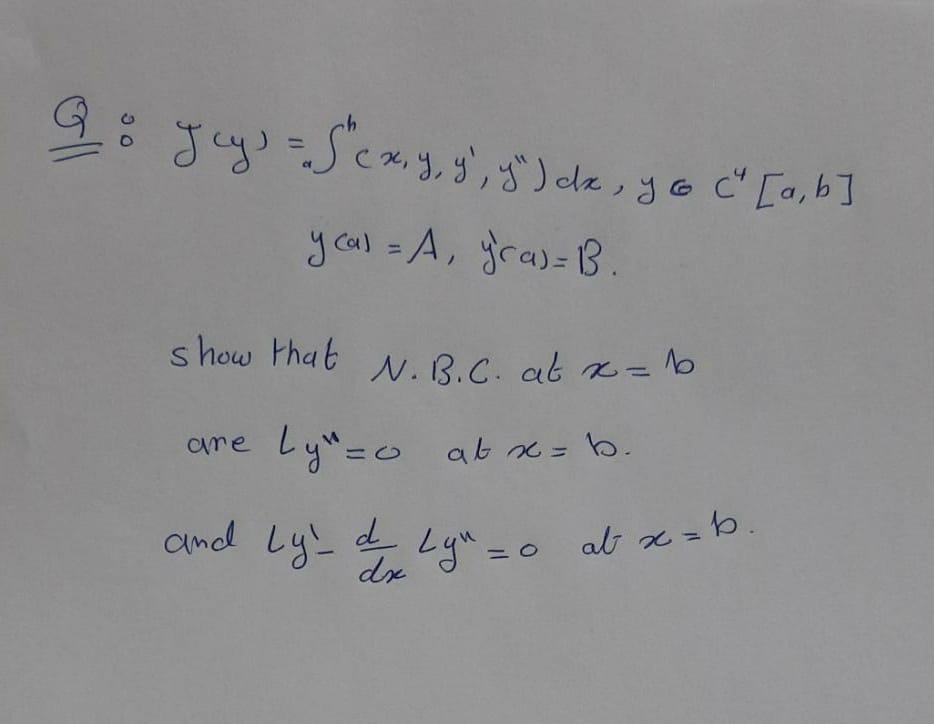 Q: J(y) = ₐ∫ᵇ (x, y, y', y") dx, y ∈ C⁴ [a, b]
y(a) = A, y'(a) = B.
show that N.B.C. at x = b
are Ly" = 0 at x = b.
and Ly' - d/dx Ly" = 0 at x = b.